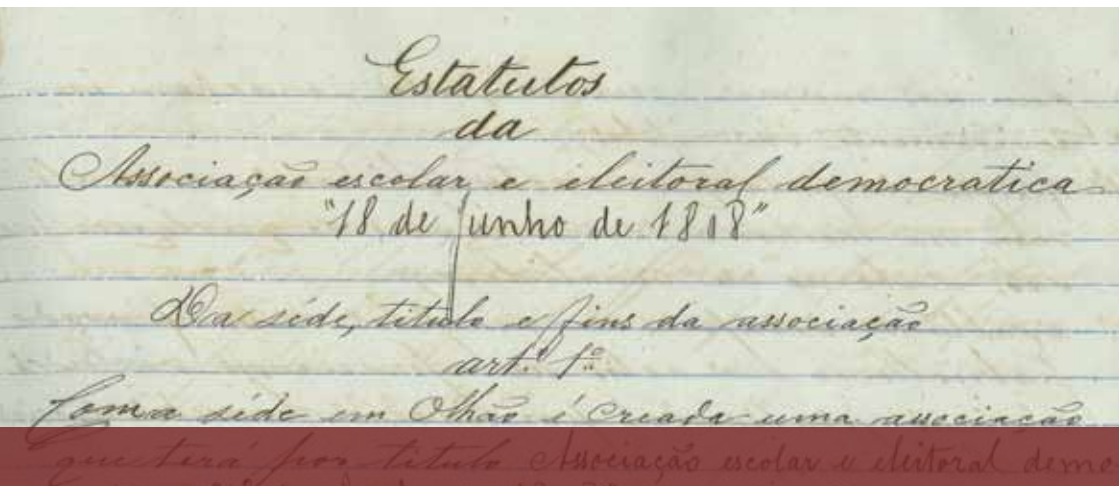 Estatutos
da
Associação escolar e eleitoral democratica
"18 de Junho de 1818"
Da séde, titulo e fins da associação
art.º 1º
Com a séde em Olhão é creada uma associação
que terá por titulo Associação escolar e eleitoral demo